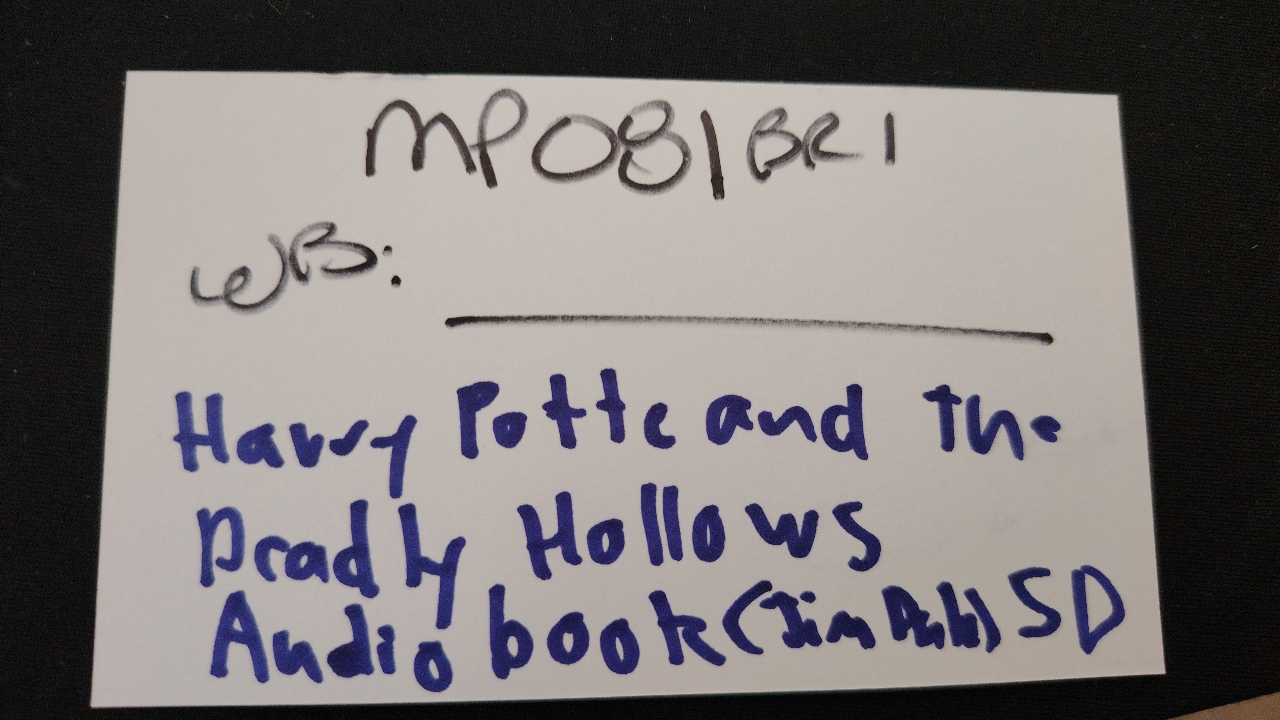 MP081BR1
WB:
Harry Potte and The
Deadly Hollows
Audio book (Jim Dale) SD